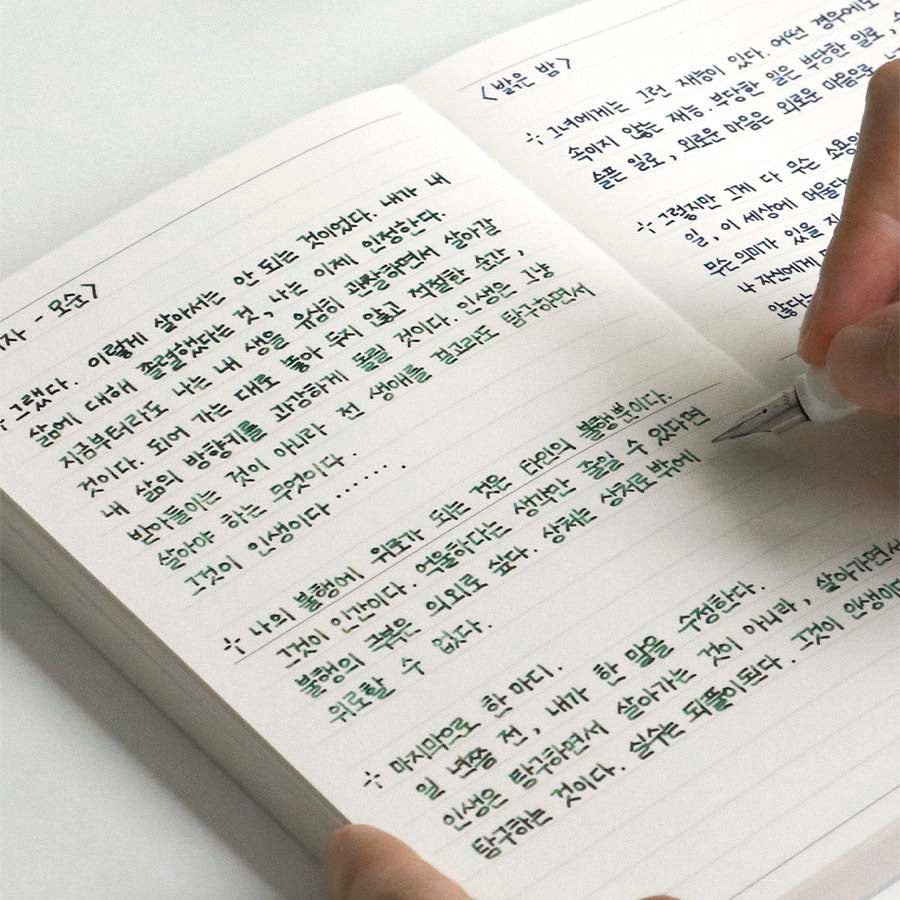 자 - 모순>
그랬다. 이렇게 살아서는 안 되는 것이었다. 내가 내
삶에 대해 졸렬했다는 것, 나는 이제 인정한다.
지금부터라도 나는 내 생을 유심히 관찰하면서 살아갈
것이다. 되어 가는 대로 놓아 두지 않고 적절한 순간,
내 삶의 방향키를 과감하게 돌릴 것이다. 인생은 그냥
받아들이는 것이 아니라 전 생애를 걸고라도 탐구하면서
살아야 하는 무엇이다.
그것이 인생이다 …… .
나의 불행에 위로가 되는 것은 타인의 불행뿐이다.
그것이 인간이다. 억울하다는 생각만 줄일 수 있다면
불행의 극복은 의외로 쉽다. 상처는 상처로밖에
위로할 수 없다.
마지막으로 한 마디.
일 년쯤 전, 내가 한 말을 수정한다.
인생은 탐구하면서 살아가는 것이 아니라, 살아가면서
탐구하는 것이다. 실수는 되풀이된다. 그것이 인생이다
<밝은 밤>
그녀에게는 그런 재능이 있다. 어떤 경우에도
속이지 않는 재능. 부당한 일은 부당한 일로,
슬픈 일로, 외로운 마음은 외로운 마음으로
그렇지만 그게 다 무슨 소용
일, 이 세상에 머물다
무슨 의미가 있을 지
나 자신에게
않다